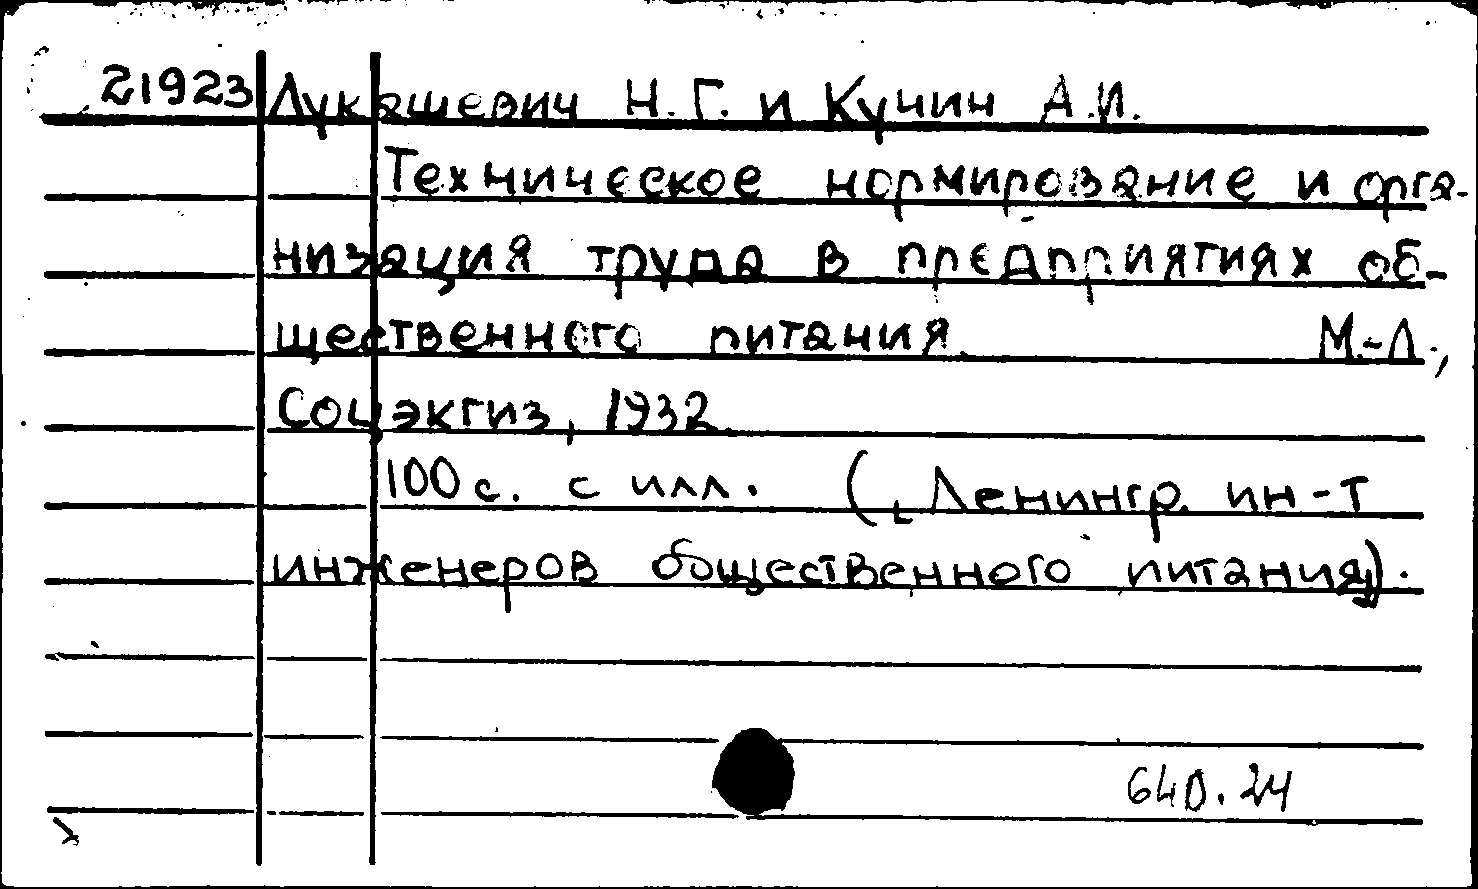 21923 Лукашевич Н.Г. и Кучин А.И.
Техническое нормирование и орга-
низация труда в предприятиях об-
щественного питания. М.-Л.,
Соцэкгиз, 1932.
100 с. с илл. (Ленингр. ин-т
инженеров общественного питания).
640.24